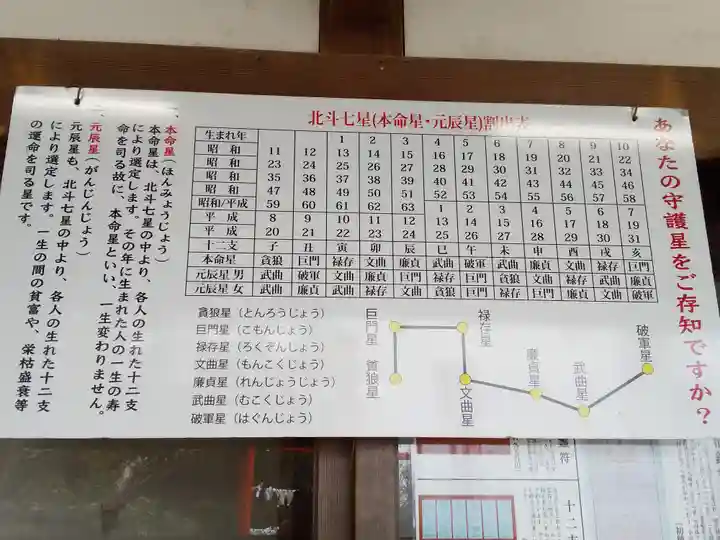 あなたの守護星をご存知ですか?
北斗七星(本命星・元辰星)割出表
生まれ年 1 2 3 4 5 6 7 8 9 10
昭和 11 12 13 14 15 16 17 18 19 20 21 22
昭和 23 24 25 26 27 28 29 30 31 32 33 34
昭和 35 36 37 38 39 40 41 42 43 44 45 46
昭和 47 48 49 50 51 52 53 54 55 56 57 58
昭和/平成 59 60 61 62 63 1 2 3 4 5 6 7
平成 8 9 10 11 12 13 14 15 16 17 18 19
平成 20 21 22 23 24 25 26 27 28 29 30 31
十二支 子 丑 寅 卯 辰 巳 午 未 申 酉 戌 亥
本命星 貪狼 巨門 禄存 文曲 廉貞 武曲 破軍 武曲 廉貞 文曲 禄存 巨門
元辰星 男 武曲 破軍 文曲 廉貞 巨門 禄存 巨門 廉貞 文曲 禄存 武曲 廉貞
元辰星 女 武曲 廉貞 武曲 禄存 文曲 貪狼 巨門 禄存 巨門 廉貞 文曲 破軍
貪狼星(とんろうじょう)
巨門星(こもんじょう)
禄存星(ろくぞんしょう)
文曲星(もんこくじょう)
廉貞星(れんじょうじょう)
武曲星(むこくじょう)
破軍星(はぐんじょう)
巨門星
禄存星
貪狼星
文曲星
廉貞星
武曲星
破軍星
一、本命星(ほんみょうじょう)
本命星は、北斗七星の中より、各人の生れた十二支
により選定します。その年に生まれた人の一生の寿
命を司る故に、本命星といい、一生変わりません。
一、元辰星(がんじんじょう)
元辰星も、北斗七星の中より、各人の生れた十二支
により選定します。一生の間の貧富や、栄枯盛衰等
の運命を司る星です。
霊符
十二支